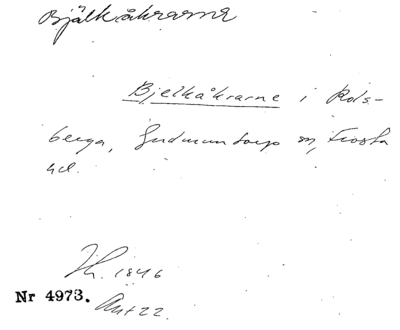 Bjälkåkrarne
Bjelkåkrarne i Rols-
berga, Gudmuntorp sn, Frosta
hd.
Th. 1846
Nr 4973.
Avt 22.